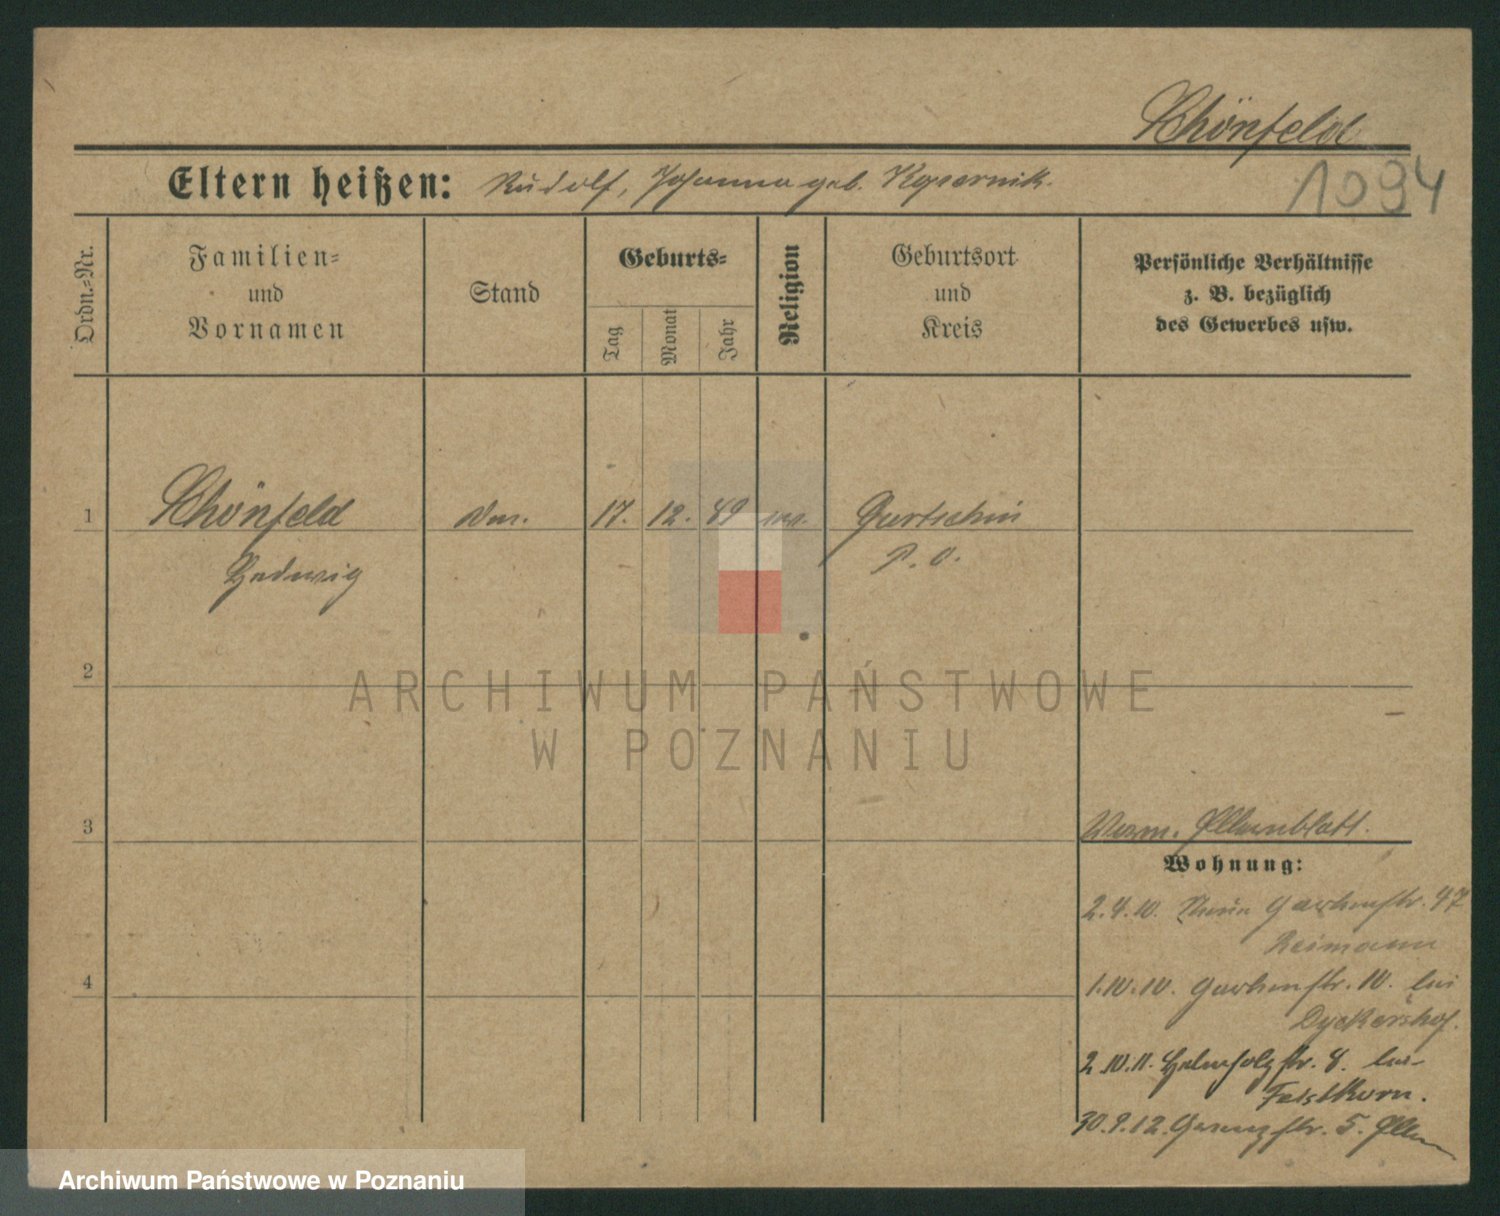 Schönfeld
1094
Eltern heißen: Rudolf, Johanna geb. Kopernik.
Ordn.-Nr.
Familien-
und
Vornamen
Stand
Geburts-
Tag
Monat
Jahr
Religion
Geburtsort
und
Kreis
Persönliche Verhältnisse
z. B. bezüglich
des Gewerbes usw.
1
Schönfeld
17.
12.
89
Gurtschin
Hedwig
P. O.
2
ARCHIWUM PAŃSTWOWE
W POZNANIU
3
Elternblatt.
Wohnung:
2.4.10. Gartenstr. 47
Reimann
4
1.10.10. Gartenstr. 10. bei
Dyckershof.
2.10.11. Helmholzstr. 8. bei
Feistkorn.
30.9.12. 5.
Archiwum Państwowe w Poznaniu